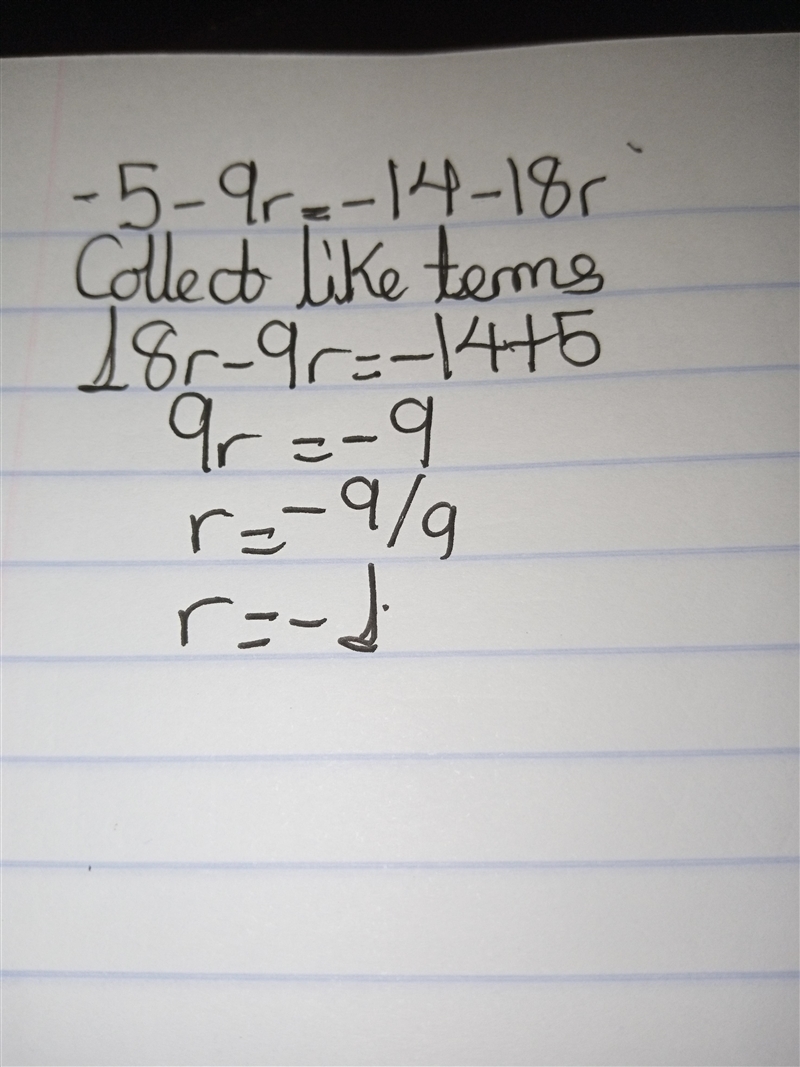 -5-9r=-14-18r
Collect like terms
18r-9r=-14+5
9r=-9
r=-9/9
r=-1